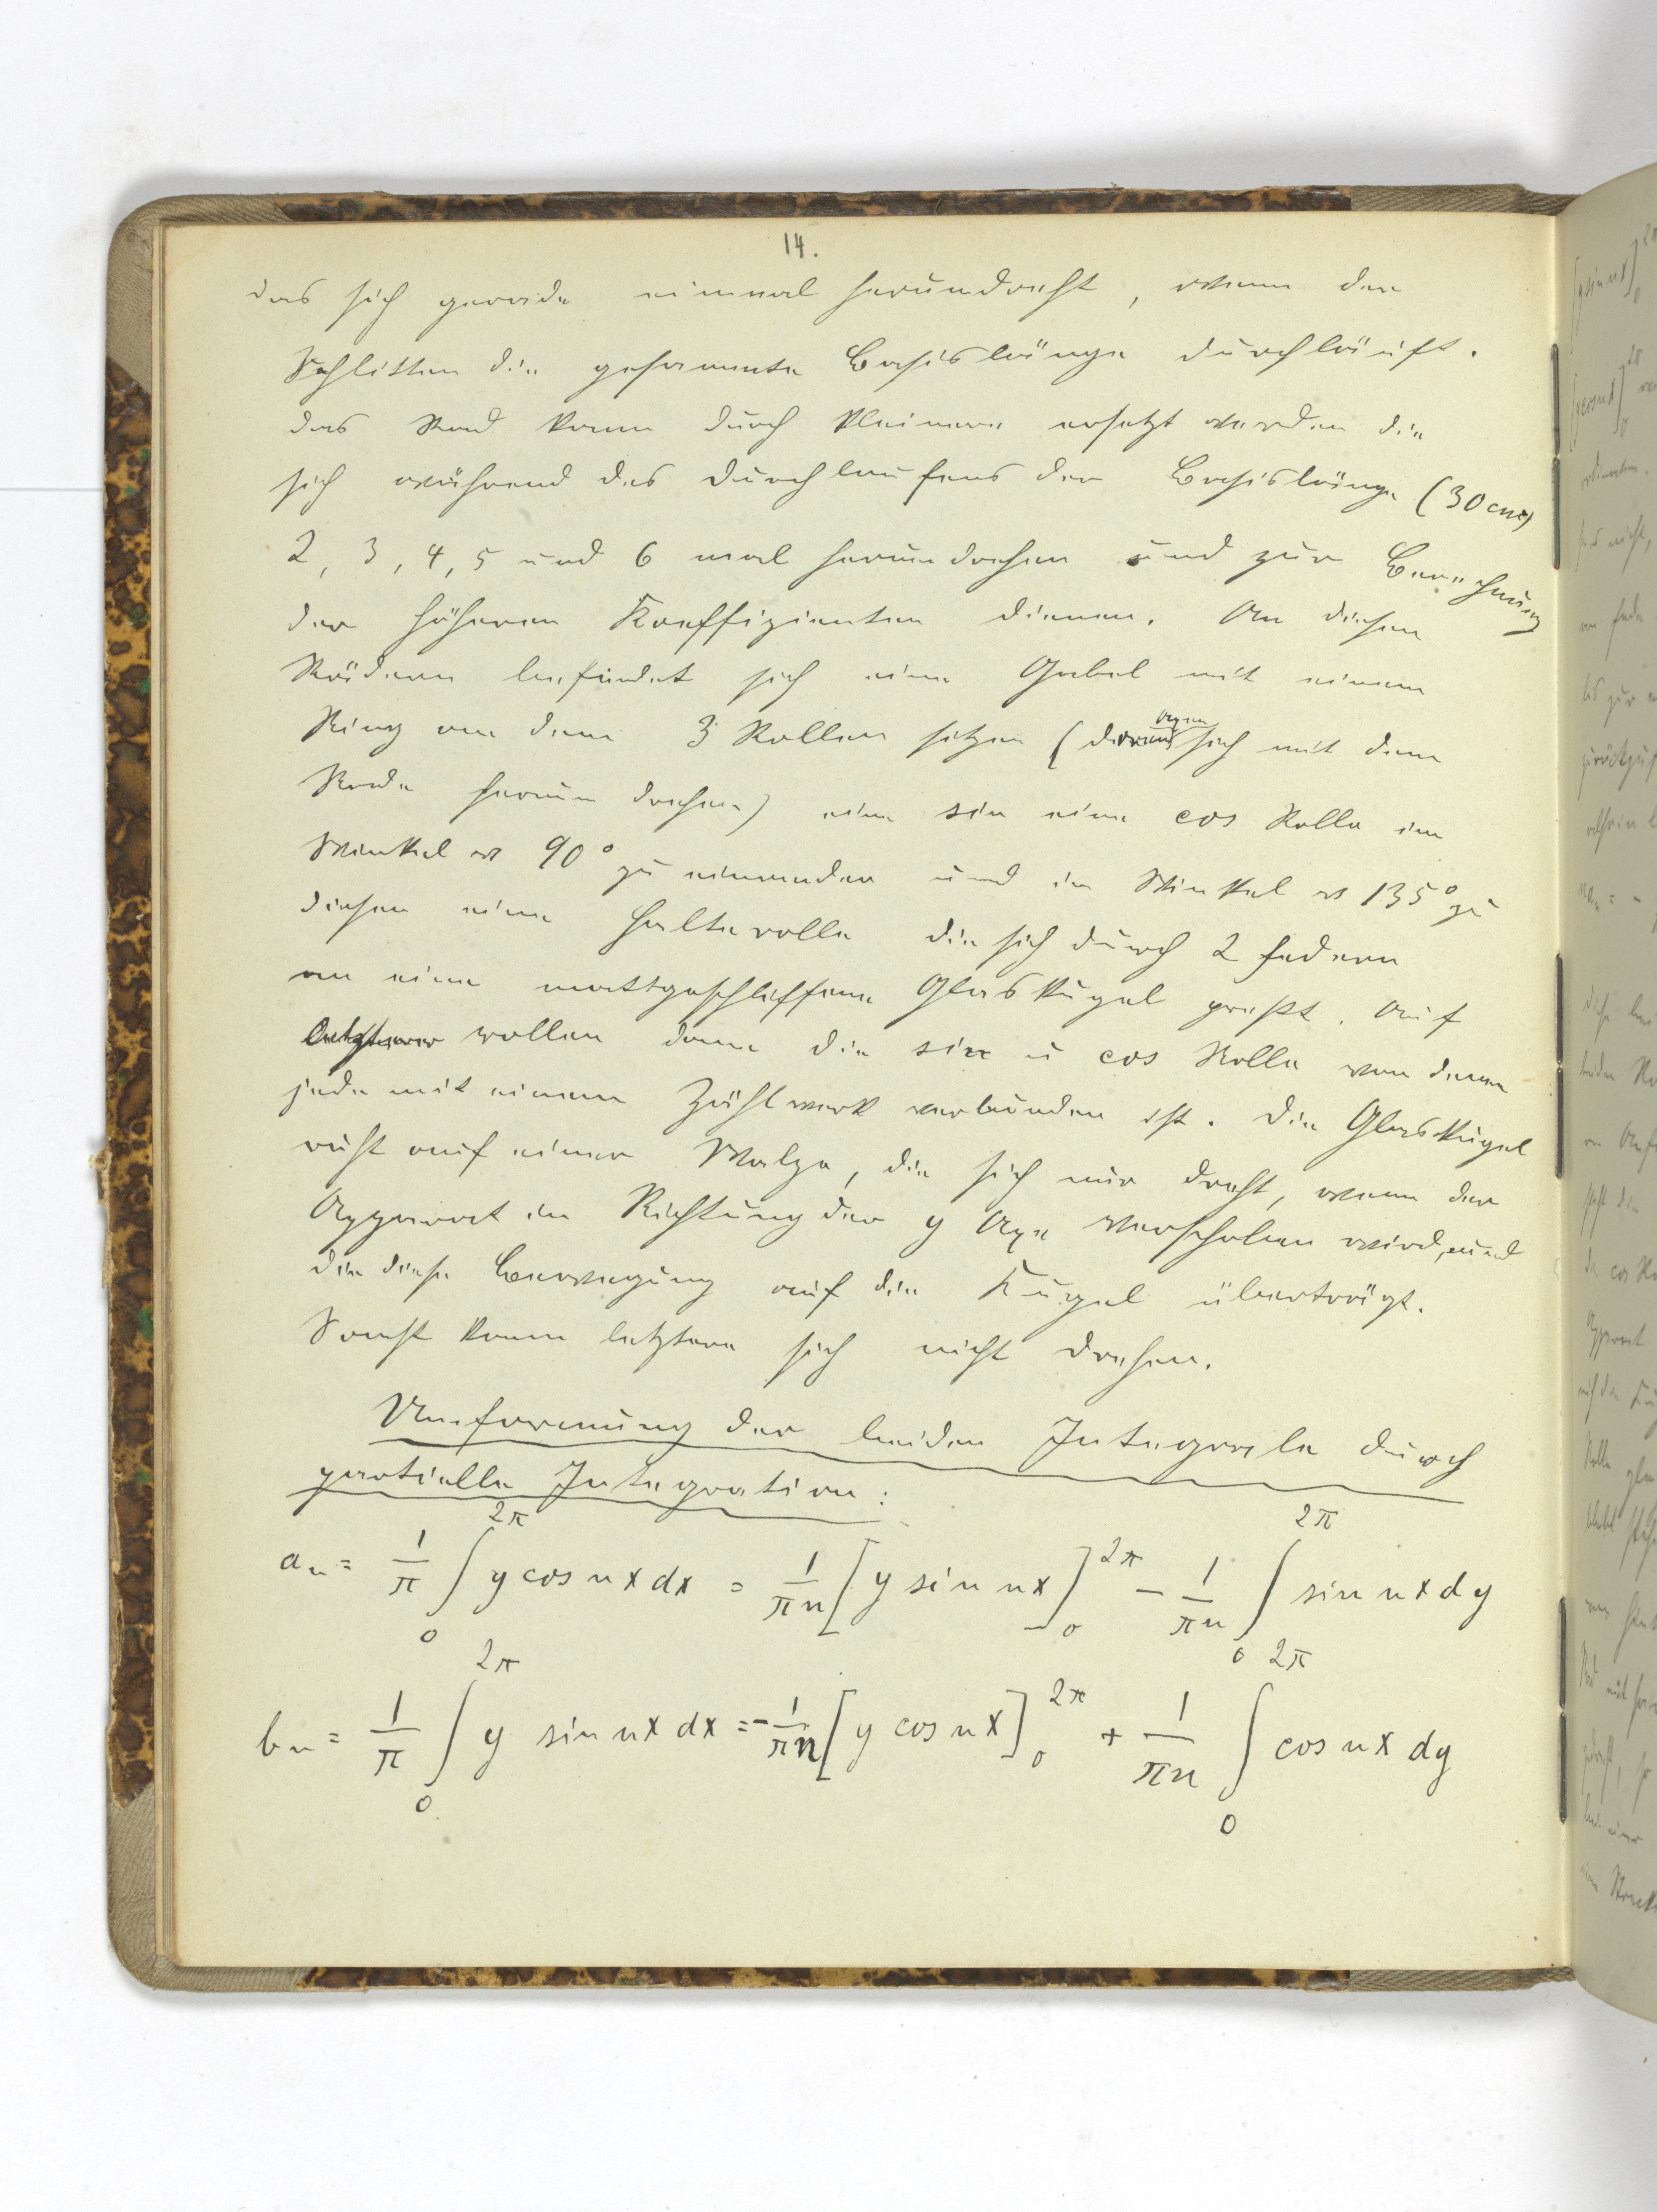 14.
das sich gerade einmal herumdreht, wenn der
Schlitten die gesammte Basislänge durchläuft.
das Rad kann durch kleinere ersetzt werden die
sich während des durchlaufens der Basislänge (30cm)
2, 3, 4, 5 und 6 mal herumdrehen und zur Berechnung
der höheren Koeffizienten dienen. An diesen
Rädern befindet sich eine Gabel mit einem
Ring an dem 3 Rollen sitzen (deren Axen sich mit dem
Rade herum drehen) eine sin eine cos Rolle im
Winkel v 90° zu einander und im Winkel v 135° zu
diesen eine Halterolle die sich durch 2 federn
an eine mattgeschliffene Glaskugel presst. Auf
letzterer rollen dann die sin u cos Rolle von denen
jede mit einem Zählwerk verbunden ist. Die Glaskugel
ruht auf einer Walze, die sich nur dreht, wenn der
Apparat in Richtung der y Axe verschoben wird, und
die diese Bewegung auf die Kugel überträgt.
Sonst kann letztere sich nicht drehen.
Umformung der beiden Integrale durch
partielle Integration:
a_n = 1/π ∫_0^{2π} y cos nx dx = 1/πn [y sin nx]_0^{2π} − 1/πn ∫_0^{2π} sin nx dy
b_n = 1/π ∫_0^{2π} y sin nx dx = −1/πn [y cos nx]_0^{2π} + 1/πn ∫_0^{2π} cos nx dy